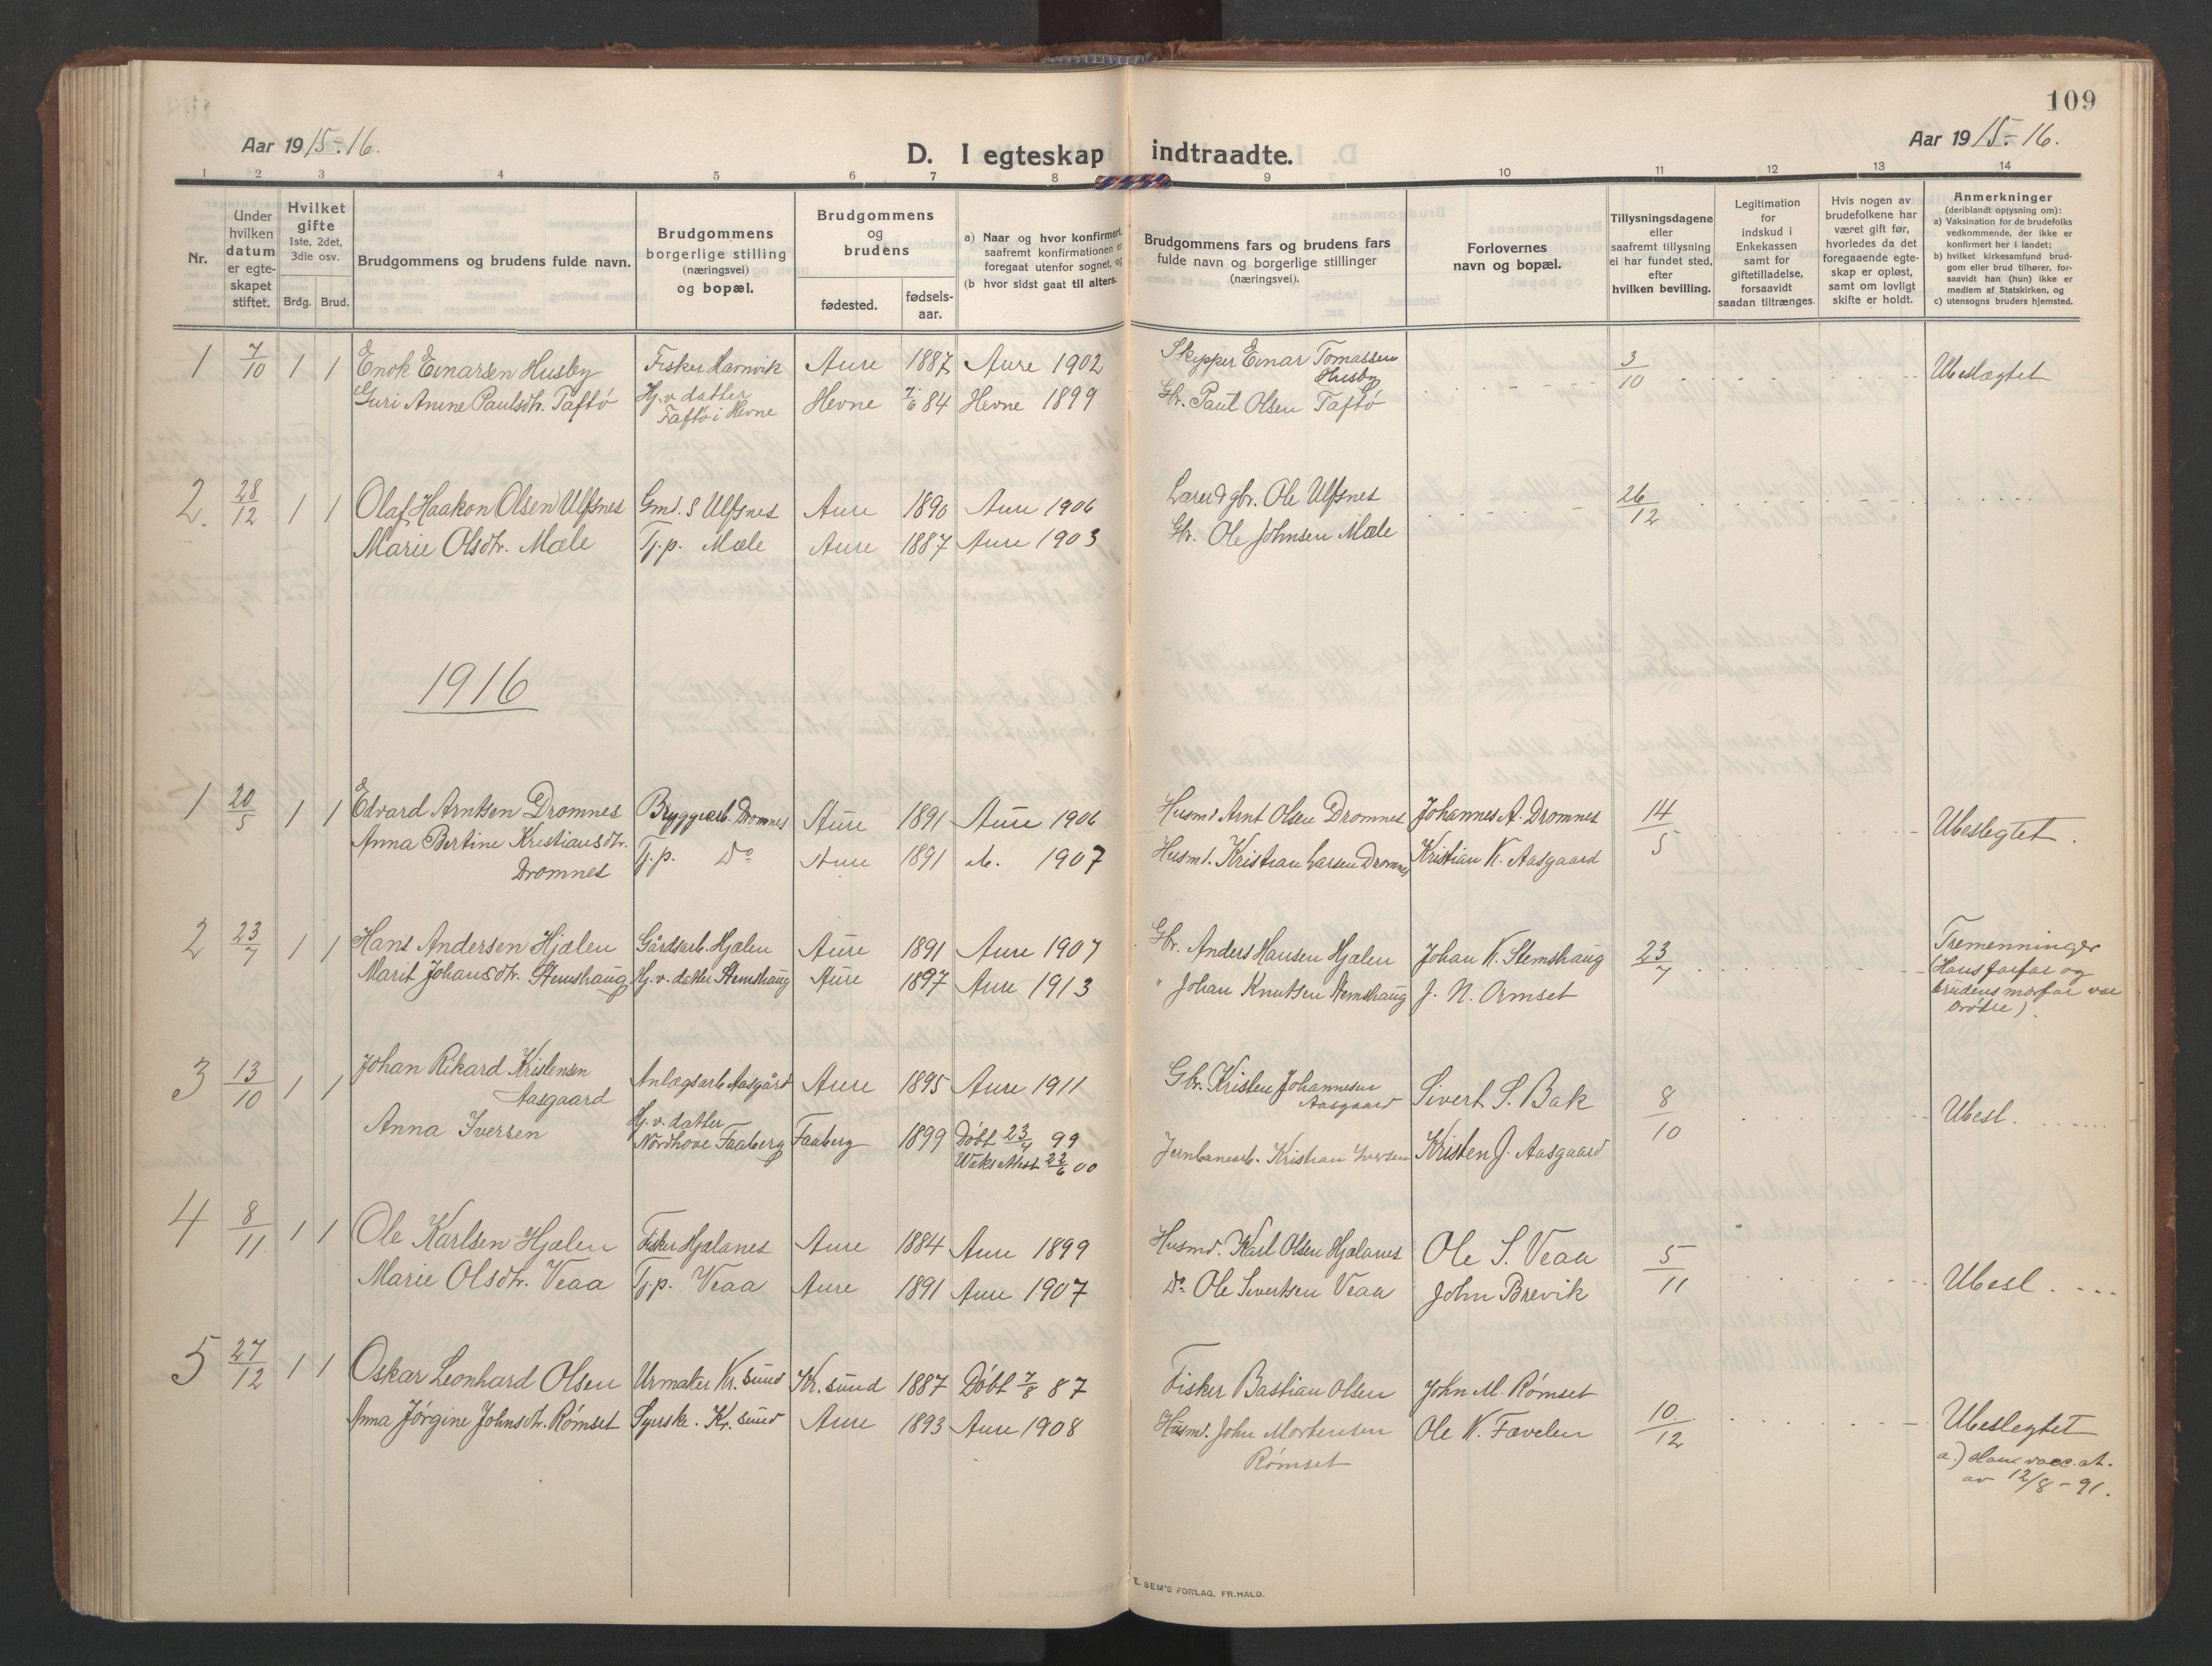 109
Aar 1915-16.
D. I egteskap indtraadte.
Aar 1915-16.
1 2 3 4 5 6 7 8 9 10 11 12 13 14
Nr.
Under hvilken datum er egteskapet stiftet.
Hvilket gifte 1ste, 2det, 3die osv.
Brdg. Brud.
Brudgommens og brudens fulde navn.
Brudgommens borgerlige stilling (næringsvei) og bopæl.
Brudgommens og brudens
fødested.
fødsels-aar.
a) Naar og hvor konfirmert, saafremt konfirmationen er foregaat utenfor sognet, og
(b hvor sidst gaat til alters.
Brudgommens fars og brudens fars fulde navn og borgerlige stillinger (næringsvei).
Forlovernes navn og bopæl.
Tillysningsdagene eller saafremt tillysning ei har fundet sted, efter hvilken bevilling.
Legitimation for indskud i Enkekassen samt for giftetilladelse, forsaavidt saadan tiltrænges.
Hvis nogen av brudefolkene har været gift før, hvorledes da det foregaaende egteskap er opløst, samt om lovligt skifte er holdt.
Anmerkninger (deriblandt opjysning om):
a) Vaksination for de brudefolks vedkommende, der ikke er konfirmert her i landet;
b) hvilket kirkesamfund brudgom eller brud tilhører, forsaavidt han (hun) ikke er medlem af Statskirken, og
c) utensogns bruders hjemsted.
1 7/10 1 1 Enok Einarsen Husby Fisker Havnvik Aure 1887 Aure 1902 Skipper Einar Tomassen Husby 3/10 Ubeslægtet
Guri Anine Paulsdtr. Taftø Hj.v. datter Taftø i Hevne Hevne 7/6 84 Hevne 1899 Gbr. Paul Olsen Taftø
2. 28/12 1 1 Olaf Haakon Olsen Ulfsnes Gmd. S Ulfsnes Aure 1890 Aure 1906 Lærer & gbr. Ole Ulfsnes 26/12
Marie Olsdtr. Mæle Tj.p. Mæle Aure 1887 Aure 1903 Gbr. Ole Johnsen Mæle
1916
1 20/5 1 1 Edvard Arntsen Dromnes Bryggearb. Dromnes Aure 1891 Aure 1906 Husmd Arnt Olsen Dromnes Johannes A. Dromnes 14/5 Ubeslegtet.
Anna Bertine Kristiansdtr. Dromnes Tj.p. Do Aure 1891 A. 1907 Husmd. Kristian Larsen Dromnes Kristian K. Aasgaard
2 23/7 1 1 Hans Andersen Hjælen Gårdsarb. Hjælen Aure 1891 Aure 1907 Gbr. Anders Hansen Hjælen Johan K. Stemshaug 23/7 Tremenninger
Marit Johansdtr. Stemshaug Hj.v. datter Stemshaug Aure 1897 Aure 1913 " Johan Knutsen Stemshaug J. N. Ormset (Hans farfar og brudens morfar var brødre)
3 13/10 1 1 Johan Rikard Kristensen Aasgaard Anlægsarb Aasgård Aure 1895 Aure 1911 Gbr. Kristen Johannesen Aasgaard Sivert S. Bak 8/10 Ubesl.
Anna Iversen Hj.v. datter Nordhove Faaberg Faaberg 1899 Døbt 23/4 99 Jernbanearb. Kristian Iversen Kristen J. Aasgaard
Vaks Attest 22/6 00
4 8/11 1 1 Ole Karlsen Hjælen Fisker Hjælanes Aure 1884 Aure 1899 Husmd. Karl Olsen Hjælanes Ole S. Veaa 5/11
Marie Olsdtr. Veaa Tj.p. Veaa Aure 1891 Aure 1907 Do Ole Sivertsen Veaa John Brevik Ubesl.
5 27/12 1 1 Oskar Leonhard Olsen Urmaker Kr. sund Kr. sund 1887 Døbt 7/8 87 Fisker Bastian Olsen John M. Rømset 10/12
Anna Jørgine Johnsdtr. Rømset Syerske. Kr. sund Aure 1893 Aure 1908 Husmd. John Mortensen Rømset Ole K. Fævelen Ubeslegtet
a.) Hans vacc. at. av 12/8-91.
E. SEM'S FORLAG, FR.HALD.